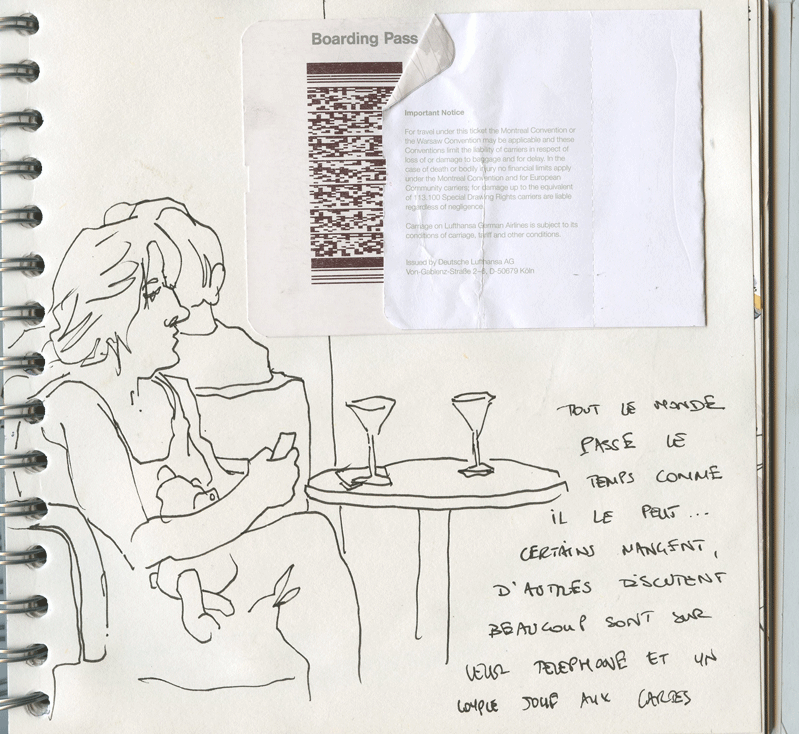 Boarding Pass
Important Notice
For travel under this ticket the Montreal Convention or
the Warsaw Convention may be applicable and these
Conventions limit the liability of carriers in respect of
loss of or damage to baggage and for delay. In the
case of death or bodily injury no financial limits apply
under the Montreal Convention and for European
Community carriers; for damage up to the equivalent
of 113.100 Special Drawing Rights carriers are liable
regardless of negligence.
Carriage on Lufthansa German Airlines is subject to its
conditions of carriage, tariff and other conditions.
Issued by Deutsche Lufthansa AG
Von-Gablenz-Straße 2–6, D-50679 Köln
TOUT LE MONDE
PASSE LE
TEMPS COMME
IL LE PEUT...
CERTAINS MANGENT,
D'AUTRES DISCUTENT
BEAUCOUP SONT SUR
LEUR TELEPHONE ET UN
COUPLE JOUE AUX CARTES